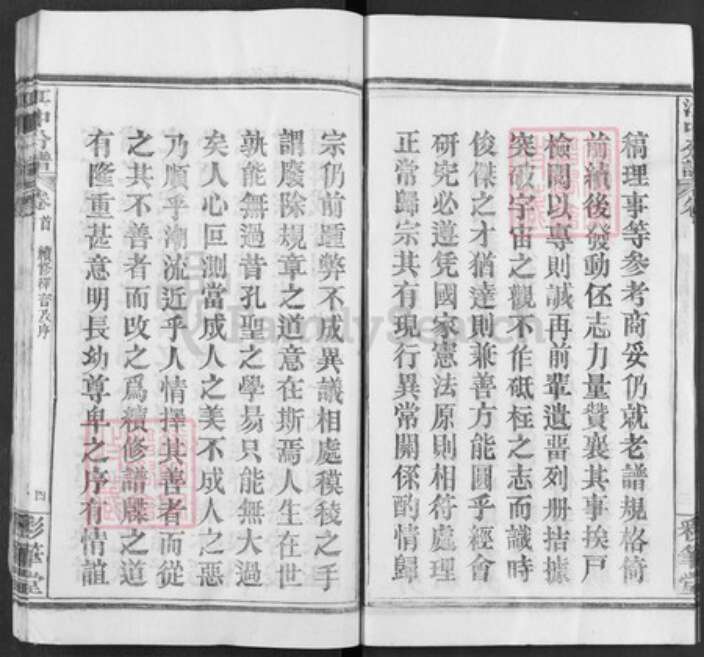 稿理事等參考商妥仍就老譜規格倚
前續後發動伾志力量贊襄其事挨戸
檢閱以專則誠再前輩遺畱列册拮據
突破宇宙之觀不作砥柱之志而識時
俊傑之才猶達則兼善方能圓乎經會
研究必遵凭國家憲法原則相符處理
正常歸宗共有現行異常關係酌情歸
彩華堂
宗仍前踵弊不成異議相處穓稜之手
謂廢除規章之道意在斯焉人生在世
孰能無過昔孔聖之學易只能無大過
矣人心叵測當成人之美不成人之惡
乃順乎潮流近乎人情擇其善者而從
之其不善者而攺之爲續修譜牒之道
有隆重甚意明長幼尊卑之序有情誼
卷首
續修祥音及序
四
彩華堂
FamilySearch